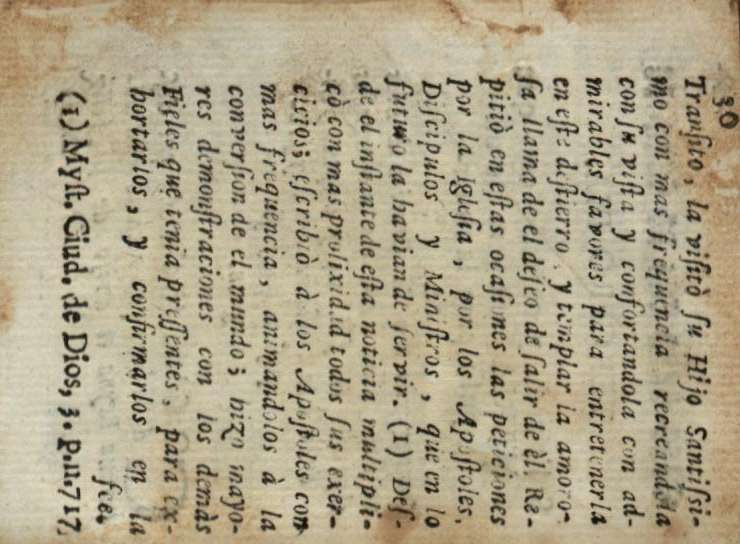 30
Tranſito, la viſitò ſu Hijo Santiſsi-
mo con mas frequencia recreandola
con ſu viſta y confortandola con ad-
mirables favores para entretenerla
en eſte deſtierro, y templar la amoro-
ſa llama de el deſeo de ſalir de èl. Re-
pitiò en eſtas ocaſiones las peticiones
por la igleſia, por los Apoſtoles,
Diſcipulos y Miniſtros, que en lo
futuro la havian de ſervir. (1) Deſ-
de el inſtante de eſta noticia multipli-
cò con mas prolixidad todos ſus exer-
cicios; eſcribiò à los Apoſtoles con
mas frequencia, animandolos à la
converſion de el mundo; hizo mayo-
res demonſtraciones con los demàs
Fieles que tenia preſſentes, para ex-
hortarlos, y confirmarlos en la
fee.
(1) Myſt. Ciud. de Dios, 3. p. n. 717.